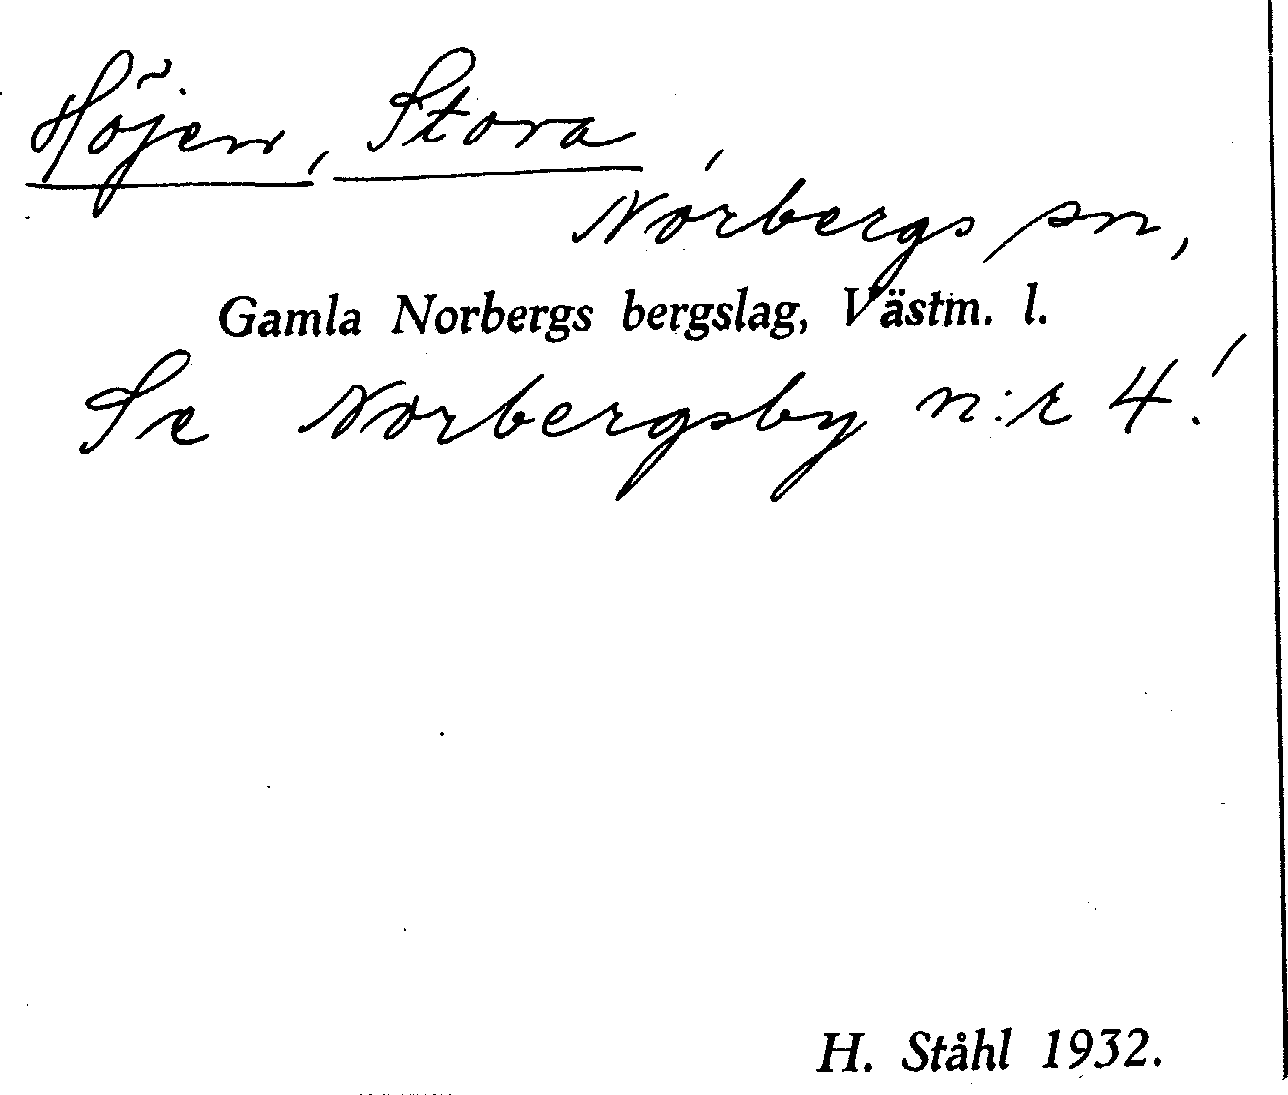 Höjen, Stora,
Norbergs sn,
Gamla Norbergs bergslag, Västm. l.
Se Norbergsby n:r 4!
H. Ståhl 1932.